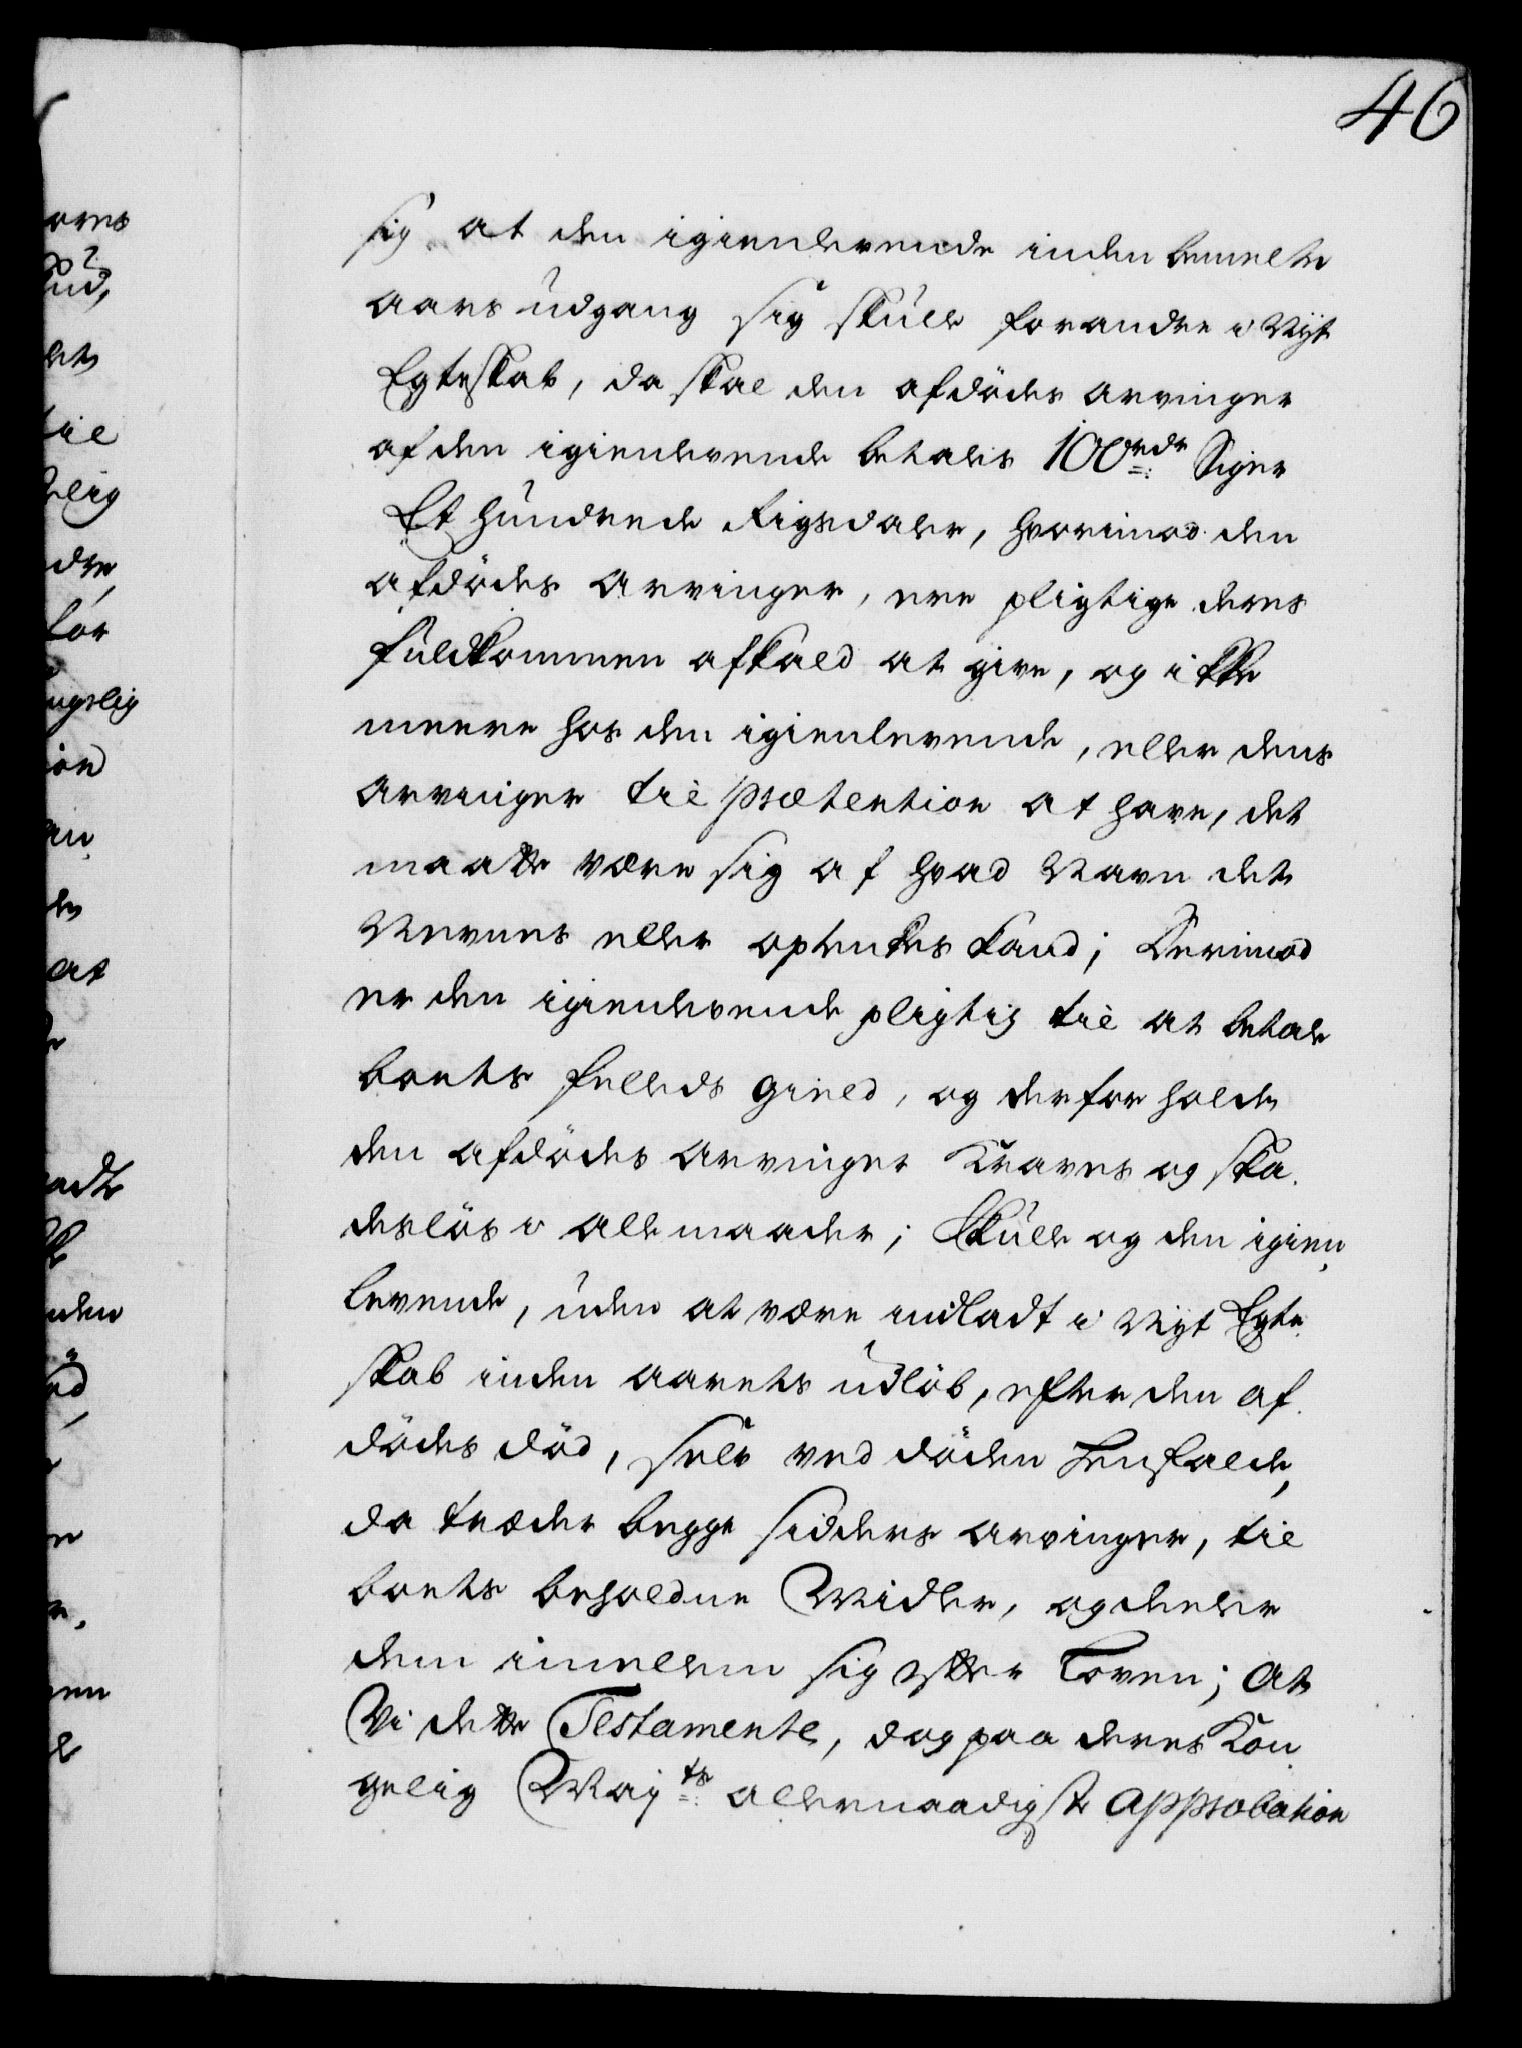 46
sig at den igienlevende inden bemelte
aars udgang sig skulle forandre i Nyt
Egteskab, da skal den afdödes arvinger
af den igienlevende betales 100 rdr Siger
Et hundrede Rigsdaler, hvorimod den
afdödes arvinger, ere pligtige deres
fuldkommen afkald at give, og ikke
meere hos den igienlevende, eller dens
arvinger til prætention at have, det
maatte være sig af hvad Navn det
Nevnes eller optenkes kand; Derimod
er den igienlevende pligtig til at betale
boets felleds gield, og derfor holde
den afdödes arvinger Kraves og ska
deslös i alle maader; Skulle og den igien
levende, uden at være indladt i Nyt Egte
skab inden aarets udlöb, efter den af
dödes död, selv ved döden henfalde,
da træder begge sidders arvinger, til
boets beholdne Midler, og deeler
dem imellem sig efter Loven; At
Vi dette Testamente, dog paa deres Kon
gelig Maj:ts allernaadigste approbation